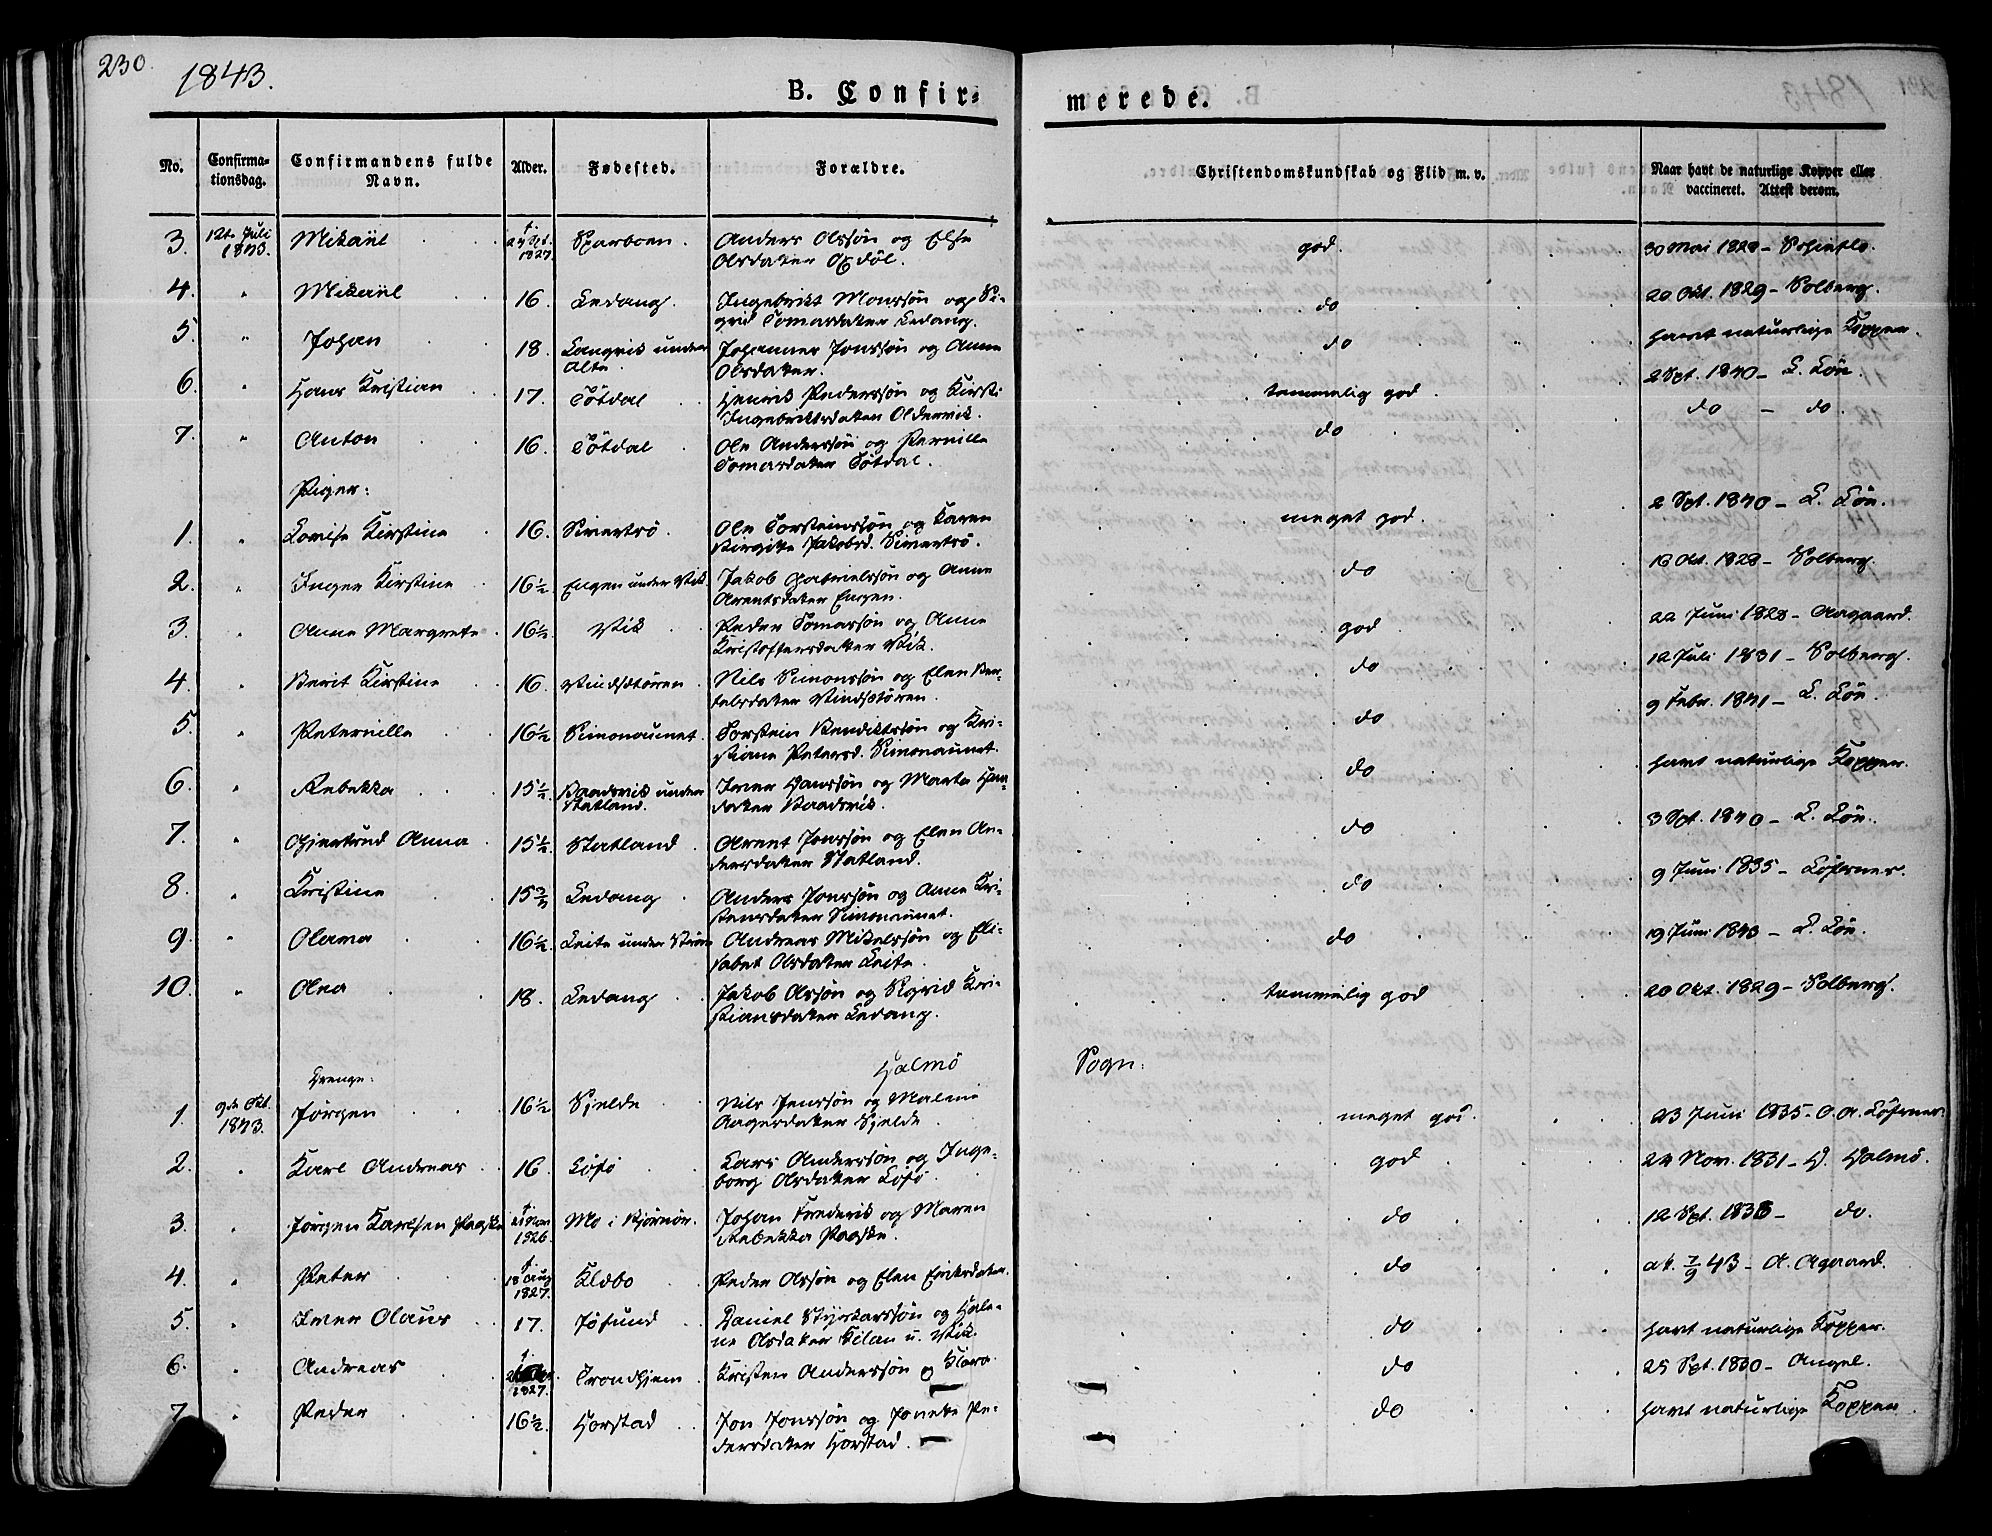 230.
1843.
B. Confir-
merede.
No.
Confirma-
tionsdag.
Confirmandens fulde
Navn.
Alder.
Fødested.
Forældre.
Christendomskundskab og Flid m. v.
Naar havt de naturlige Kopper eller
vaccineret. Attest derom.
3. 12te Juli 1843. Mikael 1827 Sparboen. Anders Olssøn og Else
Olsdater Oxdøl. god. 30 Mai 1828 -
4. " Mikael 16 Ledang. Ingebrikt Monssøn og Si-
grid Tomasdater Ledang. do 20 Okt. 1829 - Solberg.
5. " Johan 18. Langvik under
Alte. Johannes Jonssøn og Anne
Olsdater. do havt naturlige Kopper.
6. " Hans Kristian 17. Tötdal Henrik Pederssøn og Kirsti
Ingebriktsdater Oldervik. temmelig god 2 Spt. 1840 - L. Löe.
7. " Anton 16. Tötdal Ole Anderssøn og Pernille
Tomasdater Tötdal. do do - do.
Piger:
1. " Lovise Kirstine 16. Sivertvö Ole Torsteinssøn og Karen
Birgitte Jakobsd. Sivertvö. meget god. 2 Spt. 1840 - L. Löe.
2. " Inger Kirstine 16½ Engen under Vik. Jakob Gabrielssøn og Anne
Arentsdater Engen. do 18 Okt. 1828 - Solberg.
3. " Anne Margrete 16½ Vik Peder Tomassøn og Anne
Kristoffersdater Vik. god 22 Juni 1828 - Aagaard.
4. " Berit Kirstine 16. Vindsetøren Nils Simonssøn og Elen Ber-
telsdater Vindsetøren. do 12 Juli 1831 - Solberg.
5. " Peternille 16½ Simonaunet. Torstein Bendiktssøn og Kri-
stiane Petersd. Simonaunet. do 9 Febr. 1841 - L. Löe.
6. " Rebekka 15½ Baadsvik under
Statland. Iver Hanssøn og Marta Han-
dater Baadsvik. do havt naturlige Kopper.
7. " Gjertrud Anna 15½ Statland Arent Jonssøn og Elen An-
dersdater Statland. do 3 Spt. 1840 - L. Löe.
8. " Kristine 15¾ Ledang Anders Jonssøn og Anne Kri-
stensdater Simonaunet. do 9 Juni 1835 - Løfsnes.
9. " Olama 16½ Leite under Andreas Mikelssøn og Eli-
sabet Olsdater Leite. do 19 Juni 1843 - L. Löe.
10. " Olea 18. Ledang Jakob Olssøn og Sigrid Kri-
stiansdater Ledang. temmelig god 20 Okt. 1829 - Solberg.
Halmö Sogn:
Drenge:
1. 9de Okt.
1843. Jørgen 16½ Sjelde Nils Jenssøn og Malene
Aagesdater Sjelde. meget god. 23 Juni 1835 -
2. " Karl Andreas 16 Löfö Lars Anderssøn og Inge-
borg Olsdater Löfö. god 24 Nov. 1831 - H. Halmö.
3. " Jørgen Karlsen Paaske 21 Nov
1826. Mo i Bjørnør. Johan Frederik og Maren
Rebekka Paaske. do 12 Spt. 1833 - do.
4. " Peter 18 Aug
1827. Klæbo Peder Olssøn og Elen Eriksdater. do at. 7/9 43 - A. Agaard.
5. " Iver Olaus 17. Jøssund Daniel Styrkarssøn og Hele-
ne Olsdater u. Vik. do havt naturlige Kopper.
6. " Andreas 1827. Trondhjem Kristen Anderssøn og Klara. do 25 Spt. 1830 - Angel.
7. " Peder 16½ Horstad Jon Jonssøn og Jonette Pe-
dersdater Horstad. do havt naturlige Kopper.